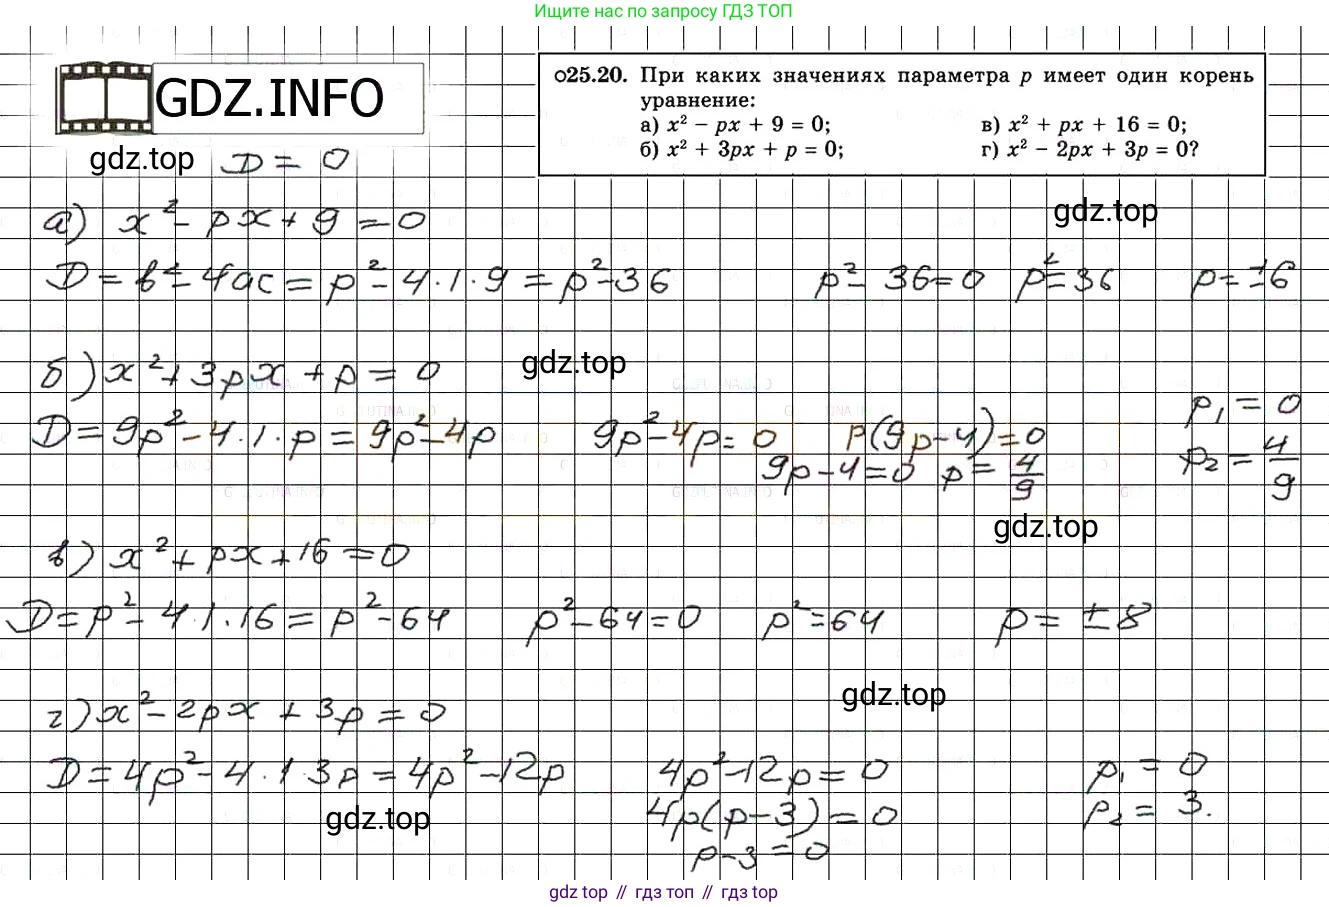 Ищите нас по запросу ГДЗ ТОП
GDZ.INFO
25.20. При каких значениях параметра p имеет один корень
уравнение:
а) x² − px + 9 = 0; в) x² + px + 16 = 0;
б) x² + 3px + p = 0; г) x² − 2px + 3p = 0?
gdz.top D = 0
gdz.top
а) x² − px + 9 = 0
D = b² − 4ac = p² − 4·1·9 = p² − 36 p² − 36 = 0 p² = 36 p = ±6
gdz.top
б) x² + 3px + p = 0
D = 9p² − 4·1·p = 9p² − 4p 9p² − 4p = 0 p(9p − 4) = 0 p₁ = 0
9p − 4 = 0 p = 4/9 p₂ = 4/9
gdz.top
в) x² + px + 16 = 0
D = p² − 4·1·16 = p² − 64 p² − 64 = 0 p² = 64 p = ±8
gdz.top
г) x² − 2px + 3p = 0
D = 4p² − 4·1·3p = 4p² − 12p 4p² − 12p = 0 p₁ = 0
gdz.top 4p(p − 3) = 0 p₂ = 3.
p − 3 = 0
gdz top // гдз топ // гдз top